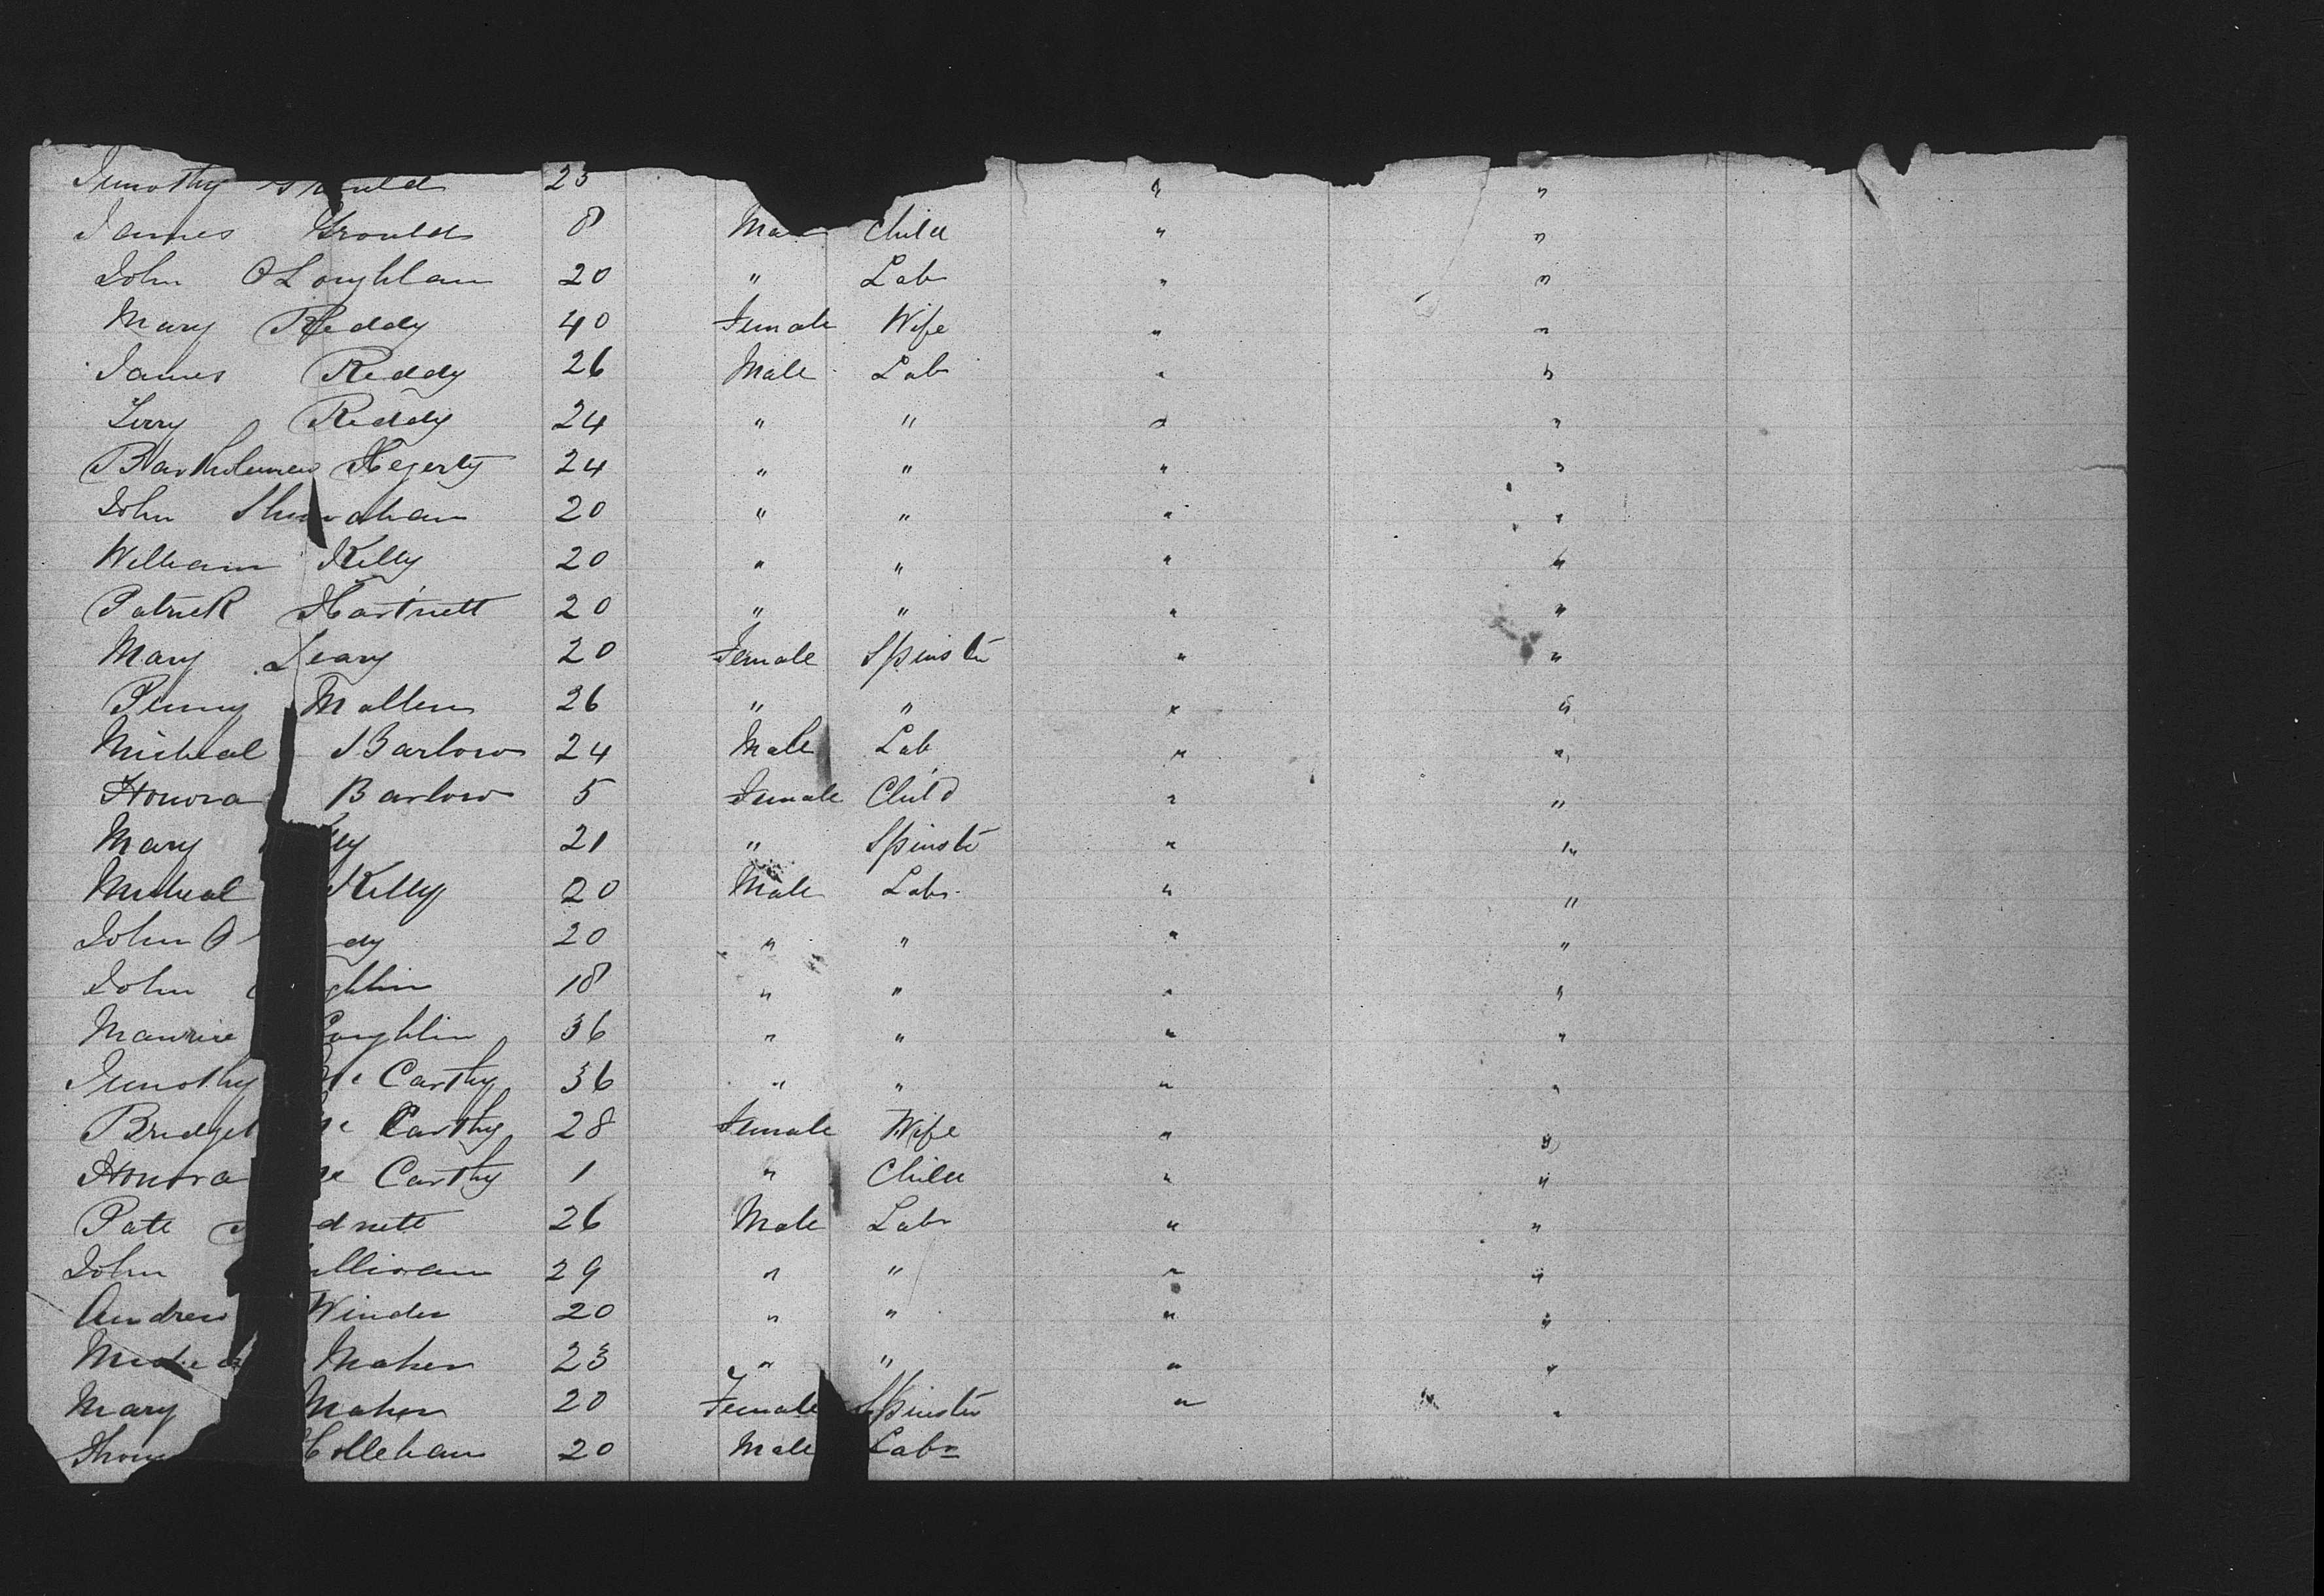 Timothy 23 " "
James Grould 8 Mal Child " "
John O Loughlan 20 " Lab " "
Mary Reddy 40 Female Wife " "
James Reddy 26 Male Lab " "
Terry Reddy 24 " " " "
Bartholemew Hegerty 24 " " " "
John 20 " " " "
William Kelly 20 " " " "
Patrick Hartnett 20 " " " "
Mary Leary 20 Female Spinstr " "
Penny Mallen 26 " " " "
Micheal Barlow 24 Male Lab " "
Honora Barlow 5 Female Child " "
Mary 21 " Spinstr " "
Micheal Kelly 20 Male Labr " "
John O dy 20 " " " "
John ghlin 18 " " " "
Maurice Coughlin 36 " " " "
Timothy Mc Carthy 36 " " " "
Bridget Mc Carthy 28 Female Wife " "
Honora Mc Carthy 1 " Child " "
Patk dnett 26 Male Labr " "
John ullivan 29 " " " "
Andrew Winder 20 " " " "
Micheal Maher 23 " " " "
Mary Maher 20 Female Spinster " "
Thom Hollehan 20 Male Labr